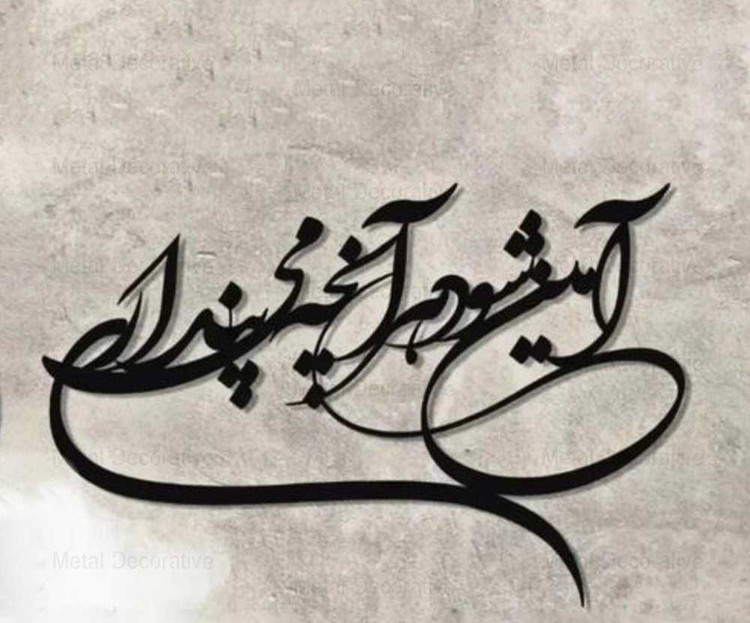 Metal Decorative Metal Decorative
Metal Decorative
Metal Decorative Metal Decorative
Metal Decorative
آن میشود هر آنچه می پنداری
Metal Decorative Metal Decorative
Metal Decorative Metal Decorative